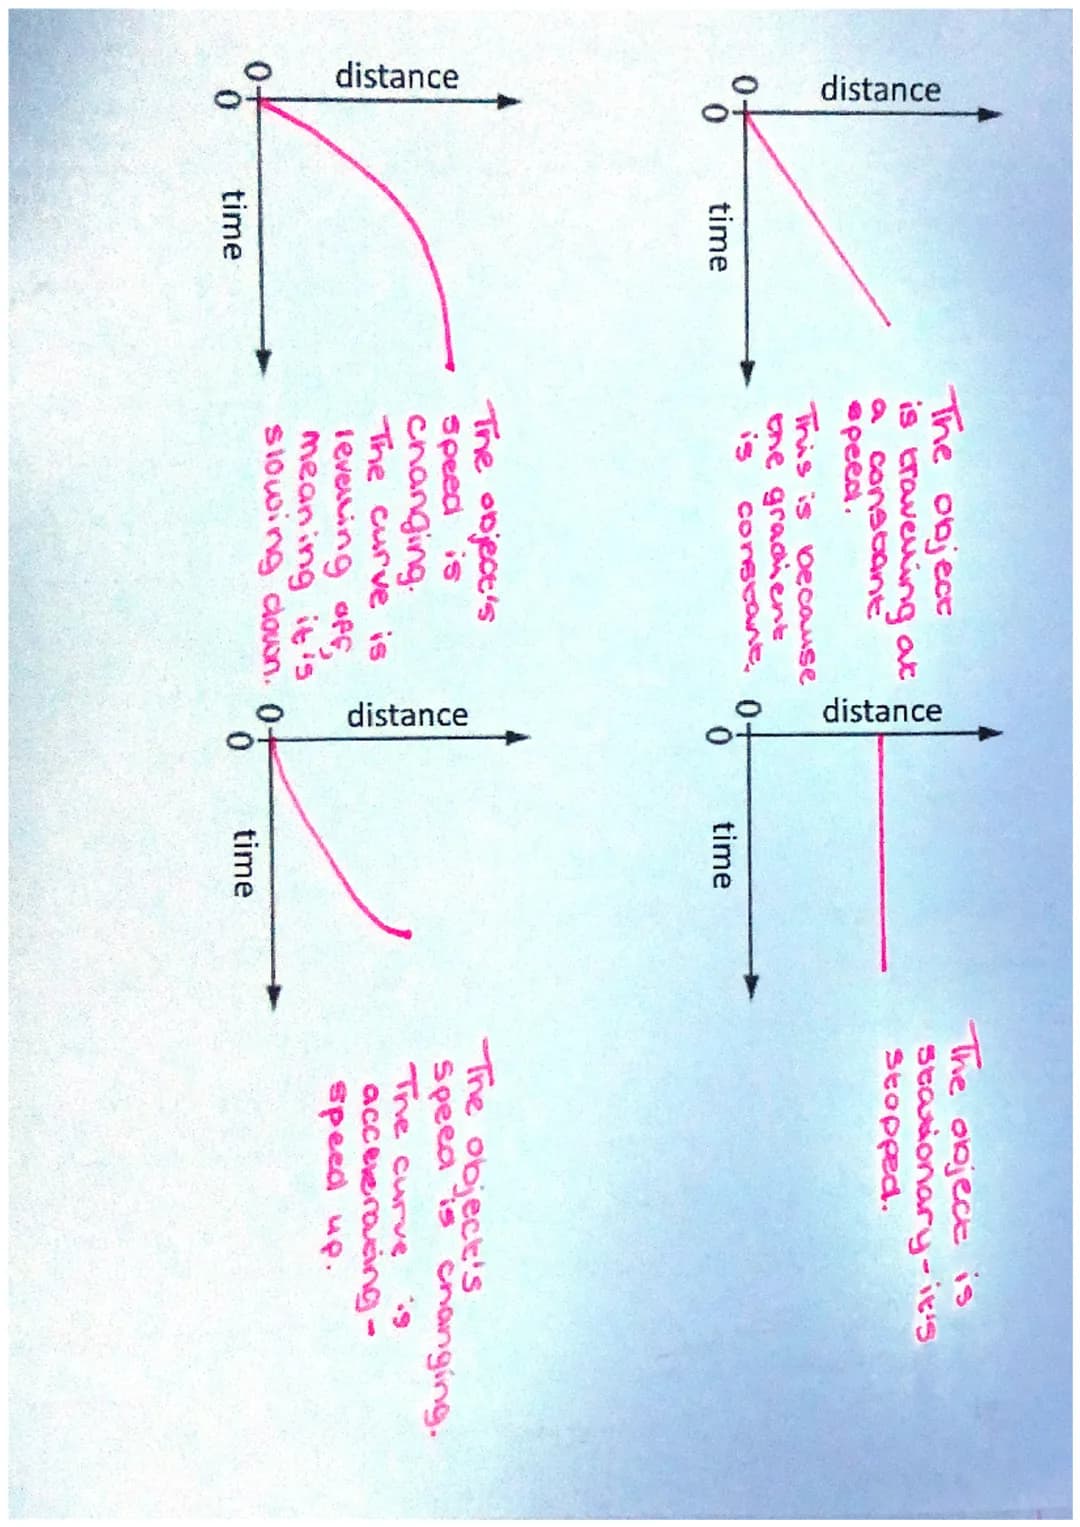 distance
0
0
time
The object
is travelling at
a constant
speed.
This is because
the gradient
is constant.
distance
0
0
time
The object is
stationary - it's
stopped.
distance
0
0
time
The object's
speed is
changing.
The curve is
levelling off,
meaning it's
slowing down.
distance
0
0
time
The object's
speed is changing.
The curve is
accelerating -
speed up.